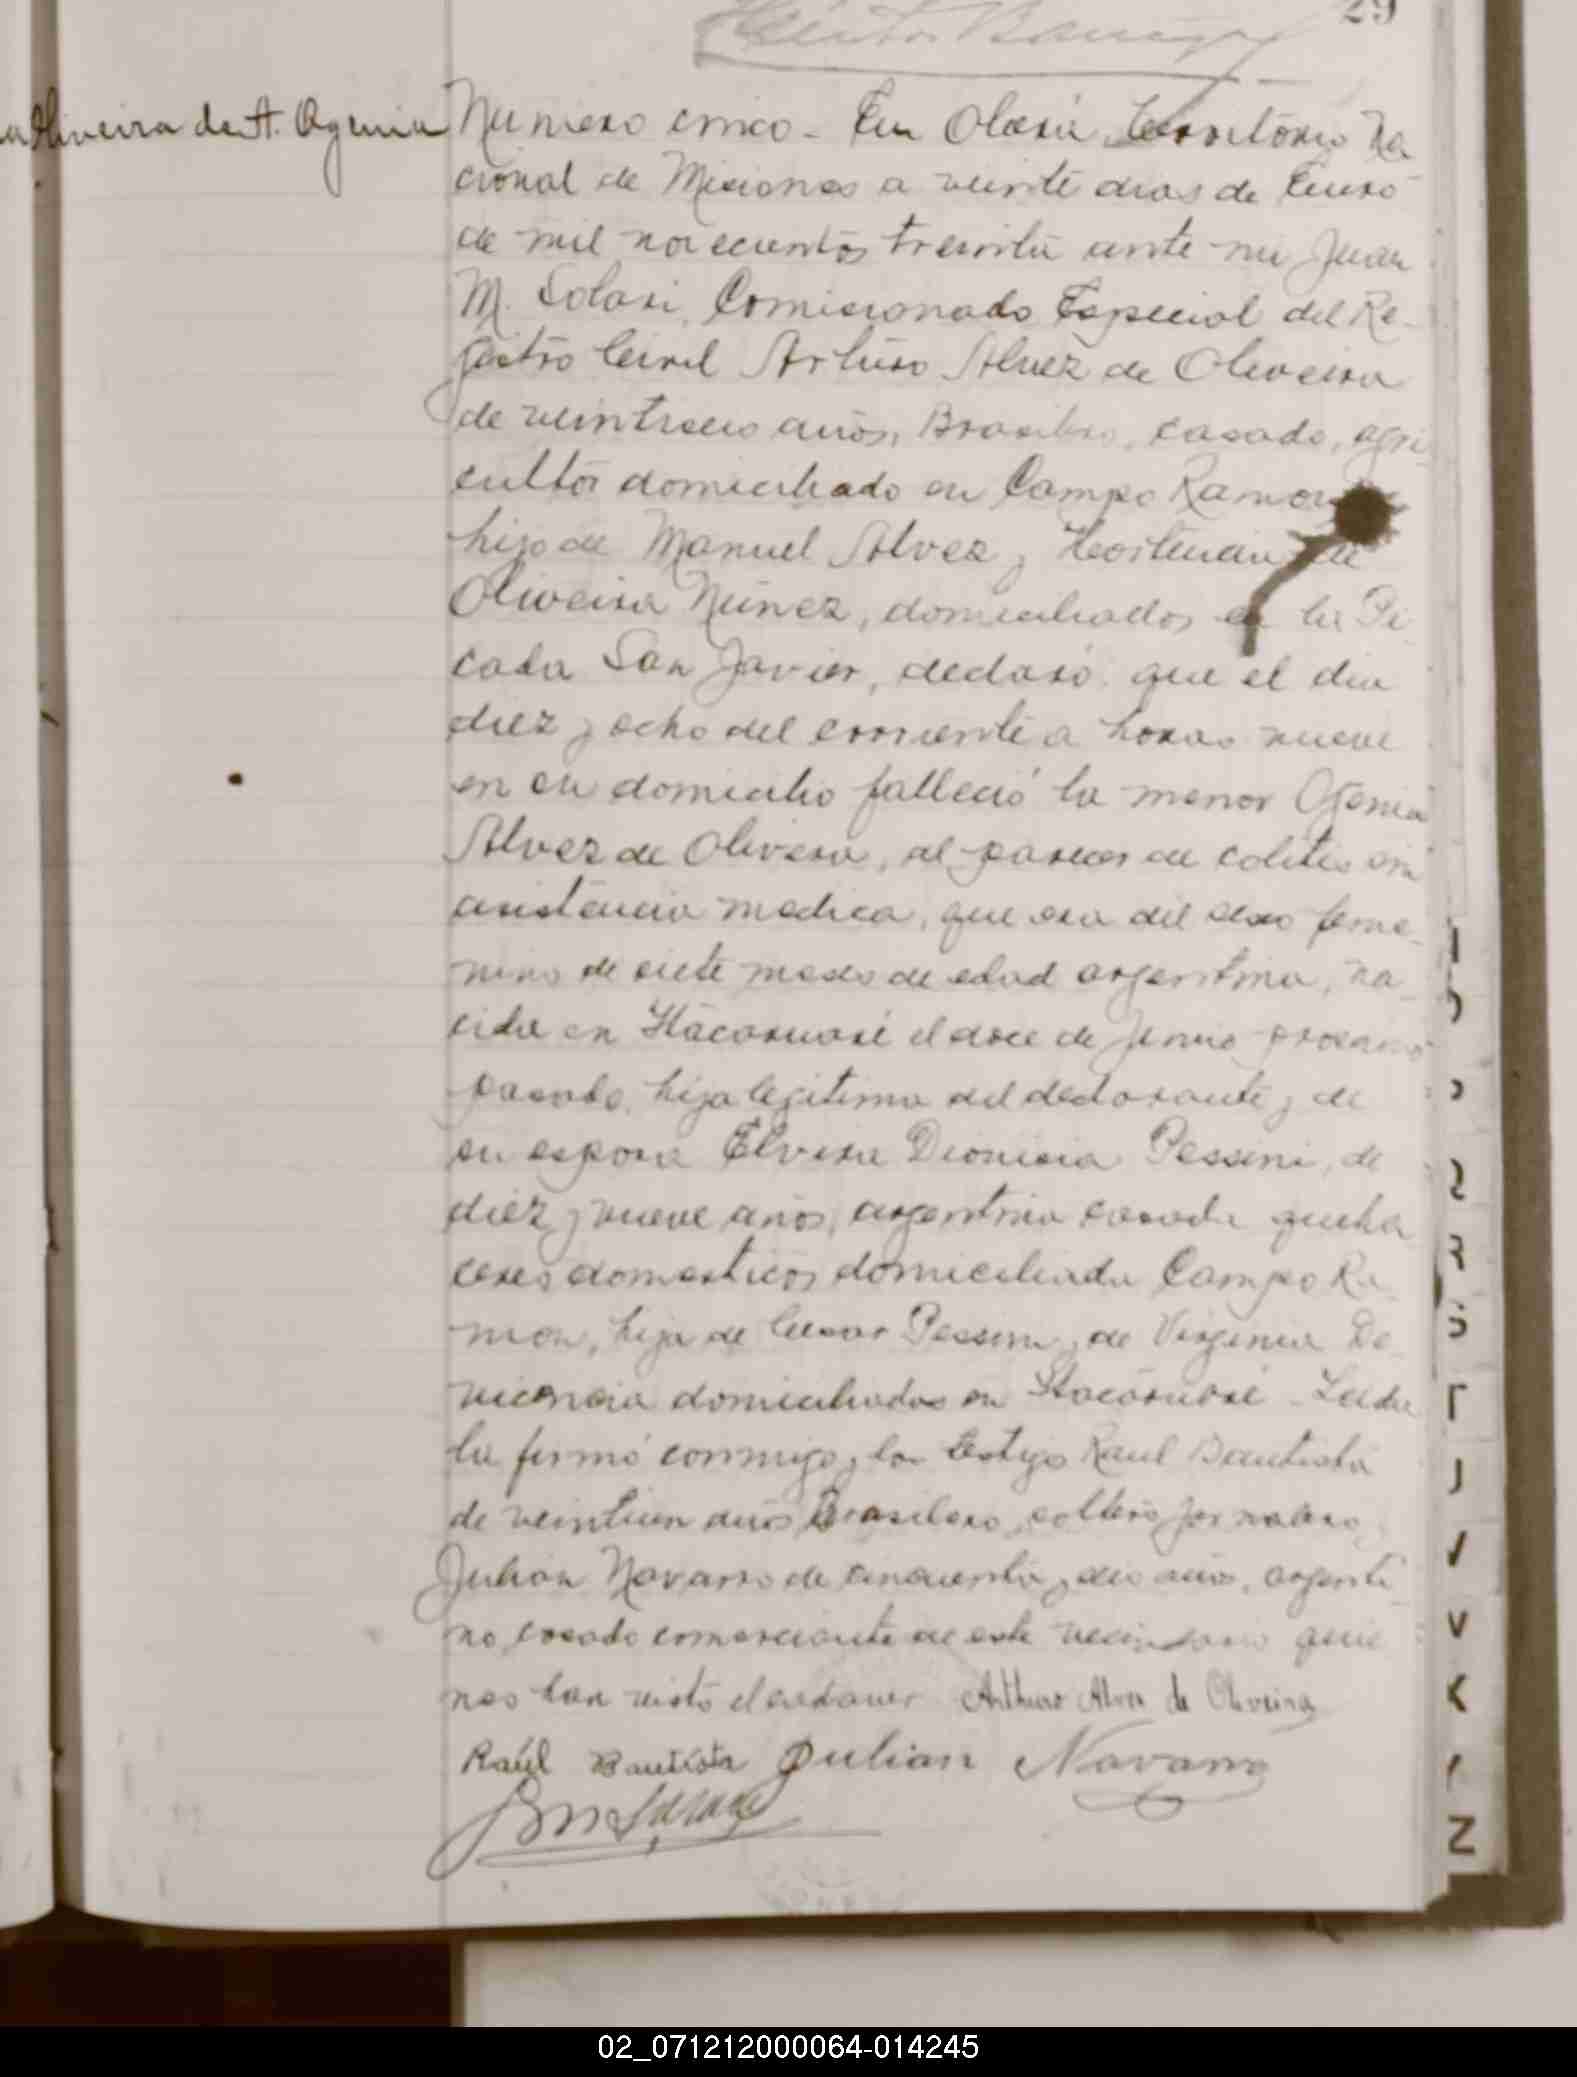 29
Oliveira de A. Ogenia
Numero cinco - En Oberá, Territorio Na
cional de Misiones a veinte dias de Enero
de mil novecientos treinta ante mi Juan
M. Solari, Comisionado Especial del Re-
gistro Civil Arturo Alvez de Oliveira
de veintiseis años, Brasilero, casado, agri
cultor domiciliado en Campo Ramon
hijo de Manuel Alvez y Hortencia de
Oliveira Nunez, domiciliados en la Pi-
cada San Javier, declaró: que el dia
diez y ocho del corriente a horas nueve
en su domicilio falleció la menor Ogenia
Alvez de Olivera, al parecer de colitis sin
asistencia medica, que era del sexo feme-
nino de siete meses de edad argentina, na-
cida en Itacaruaré el doce de Junio proximo
pasado, hija legitima del declarante y de
su esposa Elvira Dionisia Pessini, de
diez y nueve años, argentina casada queha
ceres domesticos domiciliada Campo Ra-
mon, hija de Cesar Pessini y de Virginia De-
vicencia domiciliados en Itacaruaré - Leida
la firmó conmigo y los testigos Raul Bautista
de veintiun años Brasilero, soltero jornalero,
Julian Navarro de cincuenta y dos años, argenti-
no, casado comerciante de este vecindario quie
nes han visto el cadaver Arthuro Alves de Oliveira
Raúl Bautista Julian Navarro
1
2
R
S
T
J
V
K
Z
02_071212000064-014245